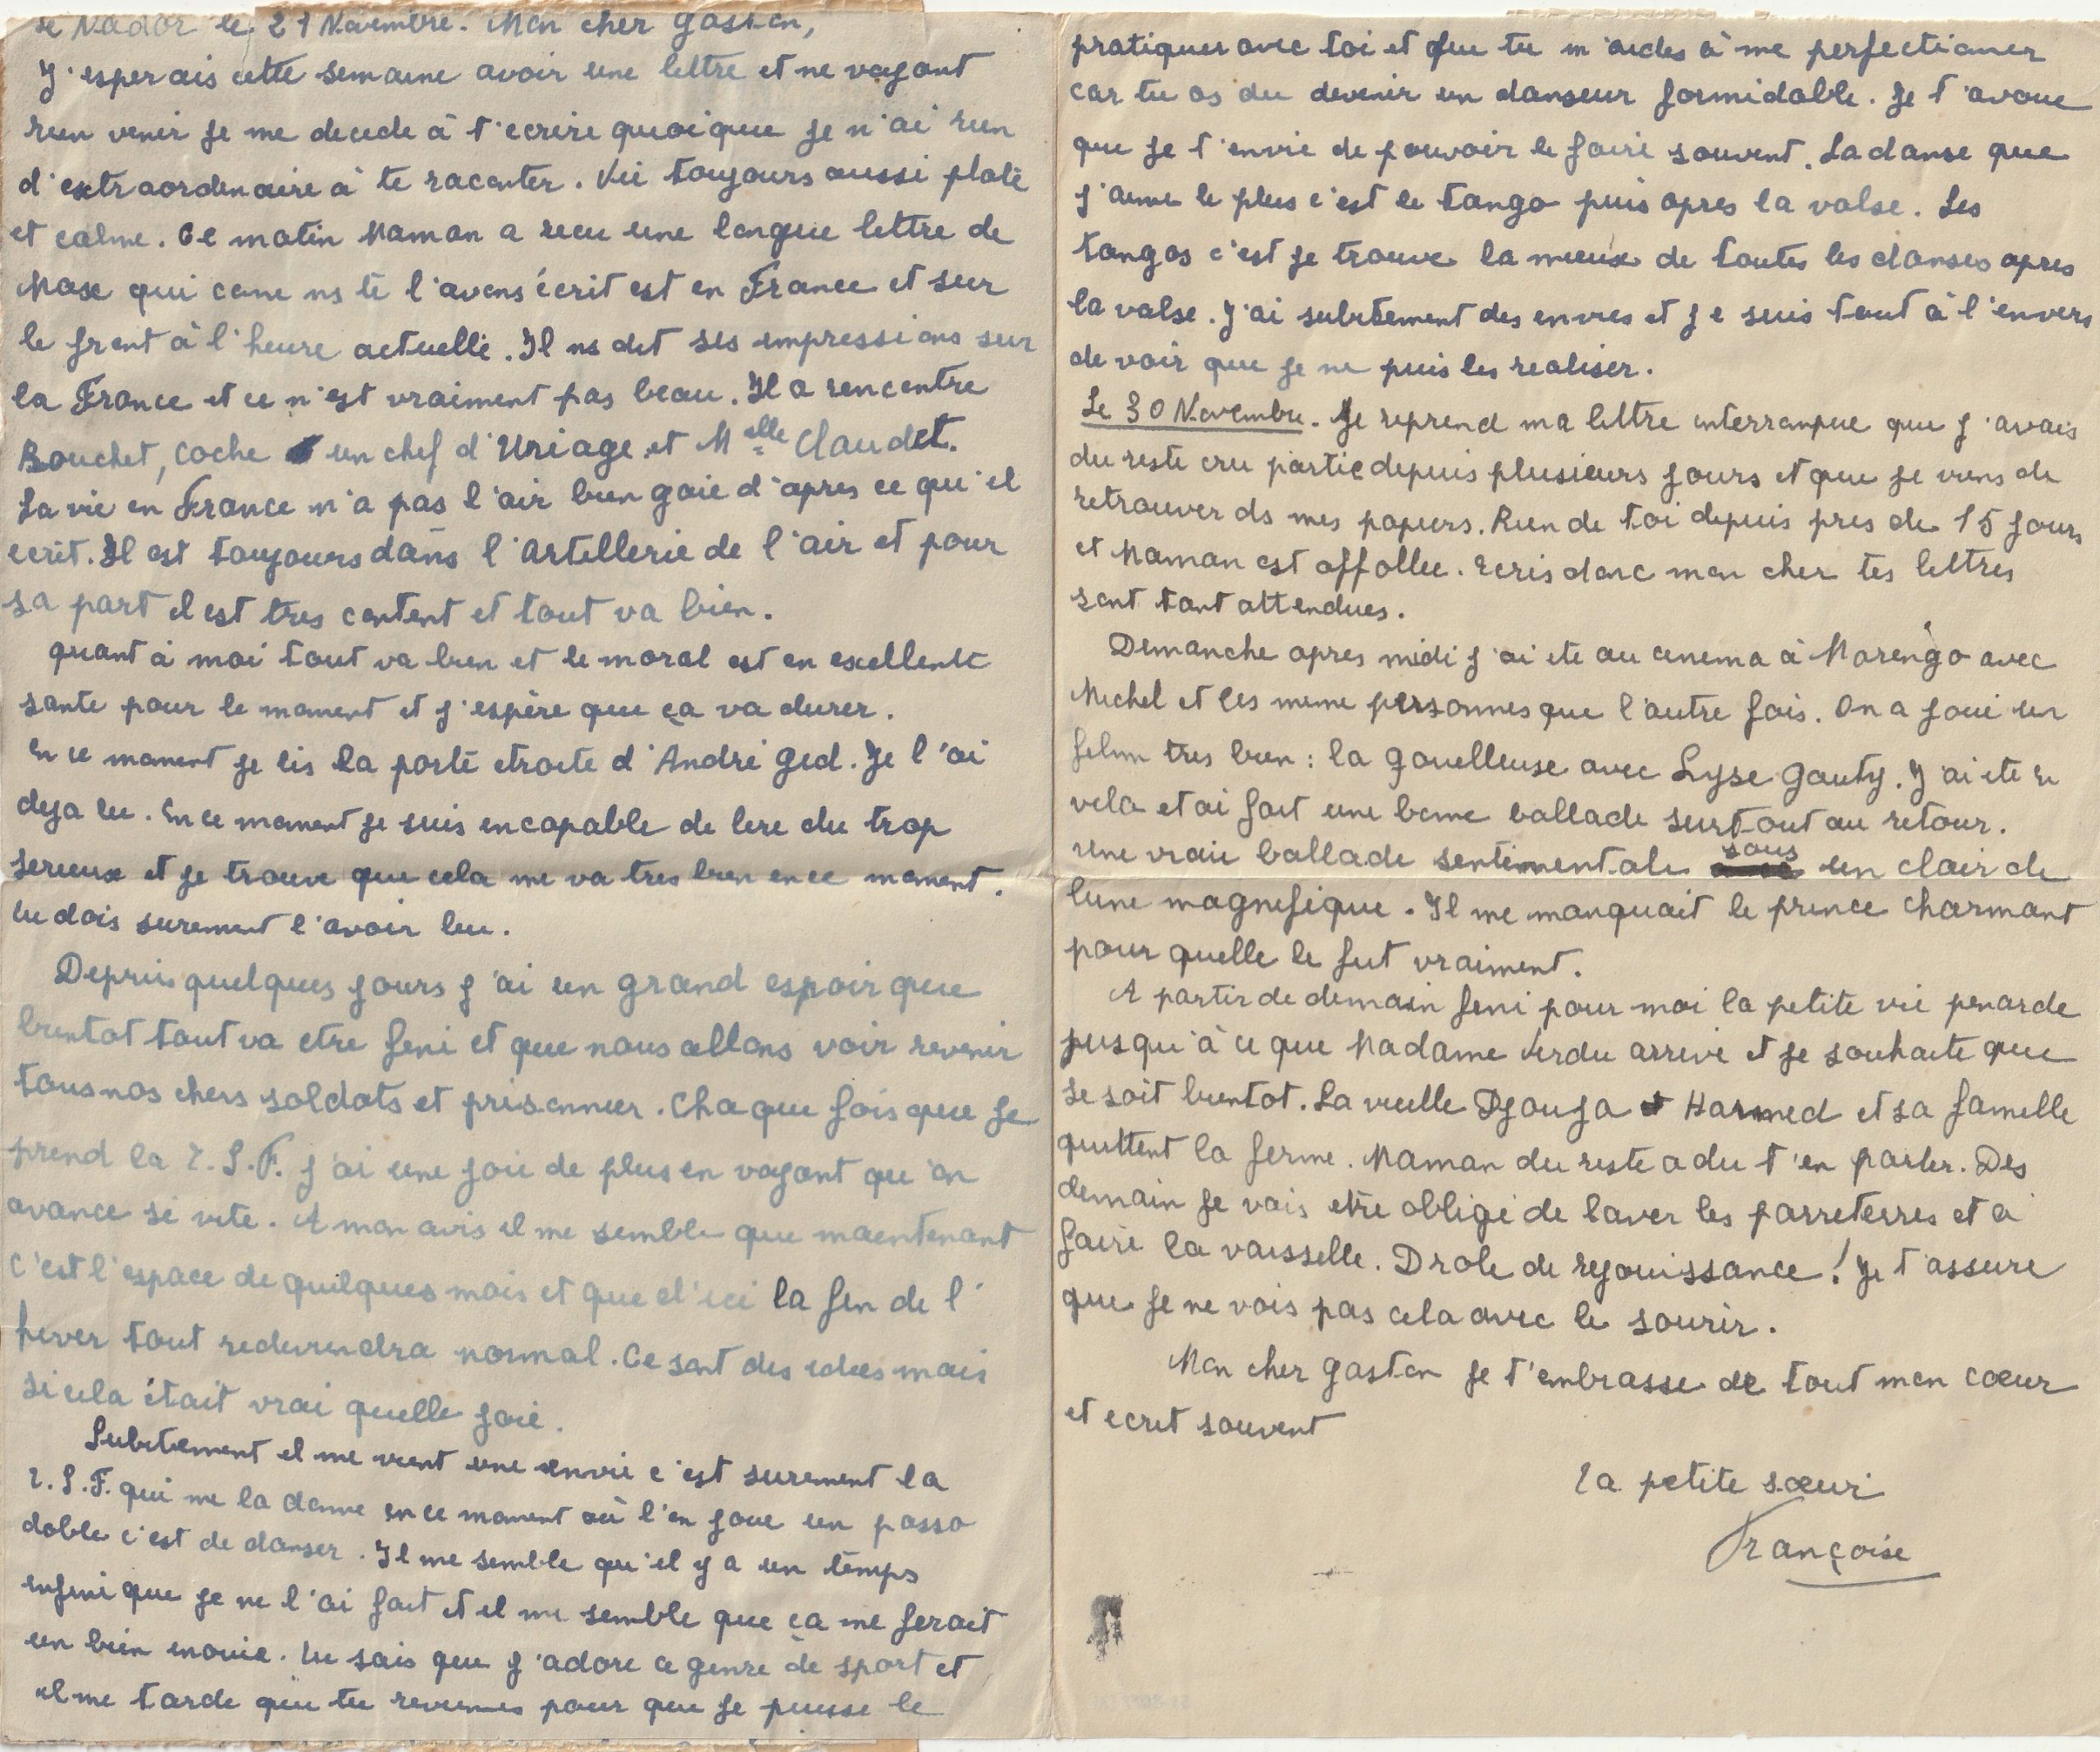 Le Nador le 21 Novembre. Mon cher Gaston,
J'esperais cette semaine avoir une lettre et ne voyant
rien venir je me decide à t'ecrire quoique je n'ai rien
d'extraordinaire à te raconter. Vie toujours aussi plate
et calme. Ce matin Maman a recu une longue lettre de
Maxe qui come ns te l'avons écrit est en France et sur
le front à l'heure actuelle. Il ns dit ses impressions sur
la France et ce n'est vraiment pas beau. Il a rencontre
Bouchet, Coche un chef d'Uriage et Melle Claudet.
La vie en France n'a pas l'air bien gaie d'apres ce qu'il
ecrit. Il est toujours dans l'Artillerie de l'air et pour
sa part il est tres content et tout va bien.
quant à moi tout va bien et le moral est en excellente
sante pour le moment et j'espère que ça va durer.
En ce moment je lis la porte etroite d'André Gid. Je l'ai
deja lu. En ce moment je suis incapable de lire du trop
serieux et je trouve que cela me va tres bien en ce moment.
Tu dois surement l'avoir lu.
Depuis quelques jours j'ai un grand espoir que
bientot tout va etre fini et que nous allons voir revenir
tous nos chers soldats et prisonnier. Chaque fois que je
prend la T.S.F. j'ai une joie de plus en voyant qu'on
avance si vite. A mon avis il me semble que maintenant
c'est l'espace de quelques mois et que d'ici la fin de l'
hiver tout redeviendra normal. Ce sont des idees mais
si cela était vrai quelle joie.
Subitement il me vient une envie c'est surement la
T.S.F. qui me la donne en ce moment où l'on joue un passo
doble c'est de danser. Il me semble qu'il y a un temps
infini que je ne l'ai fait et il me semble que ça me ferait
un bien enouie. Tu sais que j'adore ce genre de sport et
il me tarde que tu reviennes pour que je puisse le
pratiquer avec toi et que tu m'aides à me perfectioner
car tu as du devenir un danseur formidable. Je t'avoue
que je t'envie de pouvoir le faire souvent. La danse que
j'aime le plus c'est le tango puis apres la valse. Les
tangos c'est je trouve la mieux de toutes les danses apres
la valse. J'ai subitement des envies et je suis tout à l'envers
de voir que je ne puis les realiser.
Le 30 Novembre. Je reprend ma lettre interrompue que j'avais
du reste cru partie depuis plusieurs jours et que je viens de
retrouver ds mes papiers. Rien de toi depuis pres de 15 jours
et Maman est affollee. Ecris donc mon cher tes lettres
sont tant attendues.
Demanche apres midi j'ai ete au cinema à Marengo avec
Michel et les meme personnes que l'autre fois. On a joue un
film tres bien : la Goualleuse avec Lyse Gauty. J'ai ete en
velo et ai fait une bonne ballade surtout au retour.
Une vraie ballade sentimentale sous un clair de
lune magnifique. Il me manquait le prince charmant
pour quelle le fut vraiment.
A partir de demain fini pour moi la petite vie penarde
jusqu'à ce que Madame Verdu arrive et je souhaite que
se soit bientot. La vieille Djouja Hammed et sa famille
quittent la ferme. Maman du reste a du t'en parler. Des
demain je vais etre obligé de laver les parreterres et à
faire la vaisselle. Drole de rejouissance ! Je t'assure
que je ne vois pas cela avec le sourir.
Mon cher Gaston je t'embrasse de tout mon coeur
et ecrit souvent
Ta petite soeur
Françoise